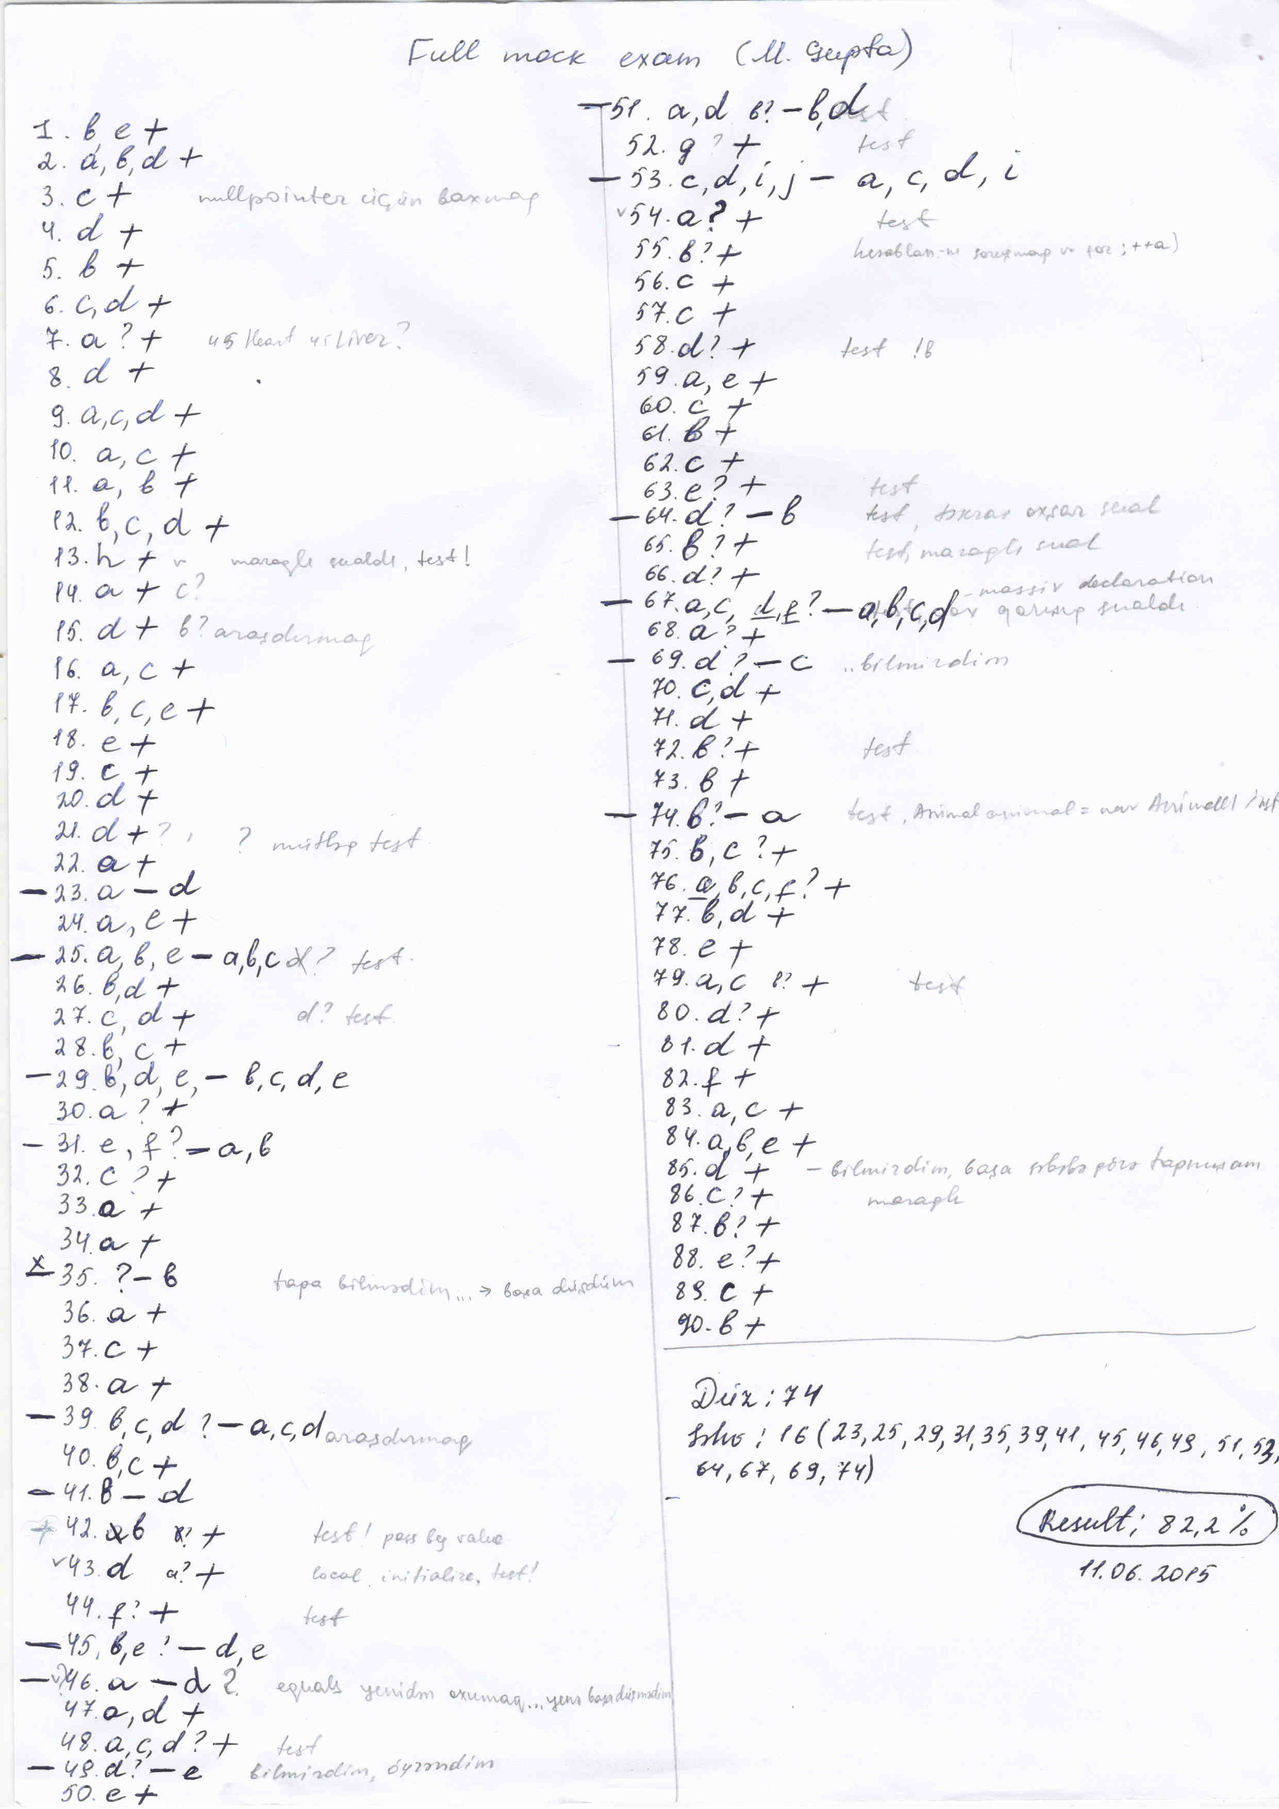 Full mock exam (M. Gupta)
1. b, e +
2. a, b, d +
3. c + nullpointer üçün baxmaq
4. d +
5. b +
6. c, d +
7. a ? + us Heart us Liver?
8. d +
9. a, c, d +
10. a, c +
11. a, b +
12. b, c, d +
13. h + v maraqlı sualdı, test!
14. a + c?
15. d + b? araşdırmaq
16. a, c +
17. b, c, e +
18. e +
19. c +
20. d +
21. d + ? , ? mütləq test
22. a +
– 23. a – d
24. a, e +
– 25. a, b, e – a,b,c d? test.
26. b,d +
27. c, d + d? test
28. b, c +
– 29. b, d, e, – b, c, d, e
30. a ? +
– 31. e, f ? – a, b
32. c ? +
33. a +
34. a +
x – 35. ? – b tapa bilmədim... → başa düşdüm
36. a +
37. c +
38. a +
– 39. b, c, d ? – a, c, d araşdırmaq
40. b, c +
– 41. b – d
+ 42. b a? + test! pass by value
v 43. d a? + local initialize, test!
44. f? + test
– 45. b, e ? – d, e
– v? 46. a – d ? equals yenidən oxumaq... yenə başa düşmədim
47. a, d +
48. a, c, d ? + test
– 49. d? – e bilmirdim, öyrəndim
50. e +
– 51. a, d b? – b, d test
52. g ? + test
– 53. c, d, i, j – a, c, d, i
v 54. a? + test
55. b? + ; ++a)
56. c +
57. c +
58. d? + test !b
59. a, e +
60. c +
61. b +
62. c +
63. e? + test
– 64. d? – b test, təkrar oxşar sual
65. b ? + test, maraqlı sual
66. d? +
– 67. a, c, d, f ? – a, b, c, d – massiv declaration qarışıq sualdı
68. a ? +
– 69. d ? – c .. bilmirdim
70. c, d +
71. d +
72. b? + test
73. b +
– 74. b? – a test, Animal animal = new Animal() test
75. b, c ? +
76. a, b, c, f ? +
77. b, d +
78. e +
79. a, c b? + test
80. d? +
81. d +
82. f +
83. a, c +
84. a, b, e +
85. d + – bilmirdim, başqa səbəbə görə tapmışam
maraqlı
86. c? +
87. b? +
88. e? +
89. c +
90. b +
Düz : 74
Səhv : 16 (23, 25, 29, 31, 35, 39, 41, 45, 46, 49, 51, 53,
64, 67, 69, 74)
Result : 82,2 %
11.06.2015